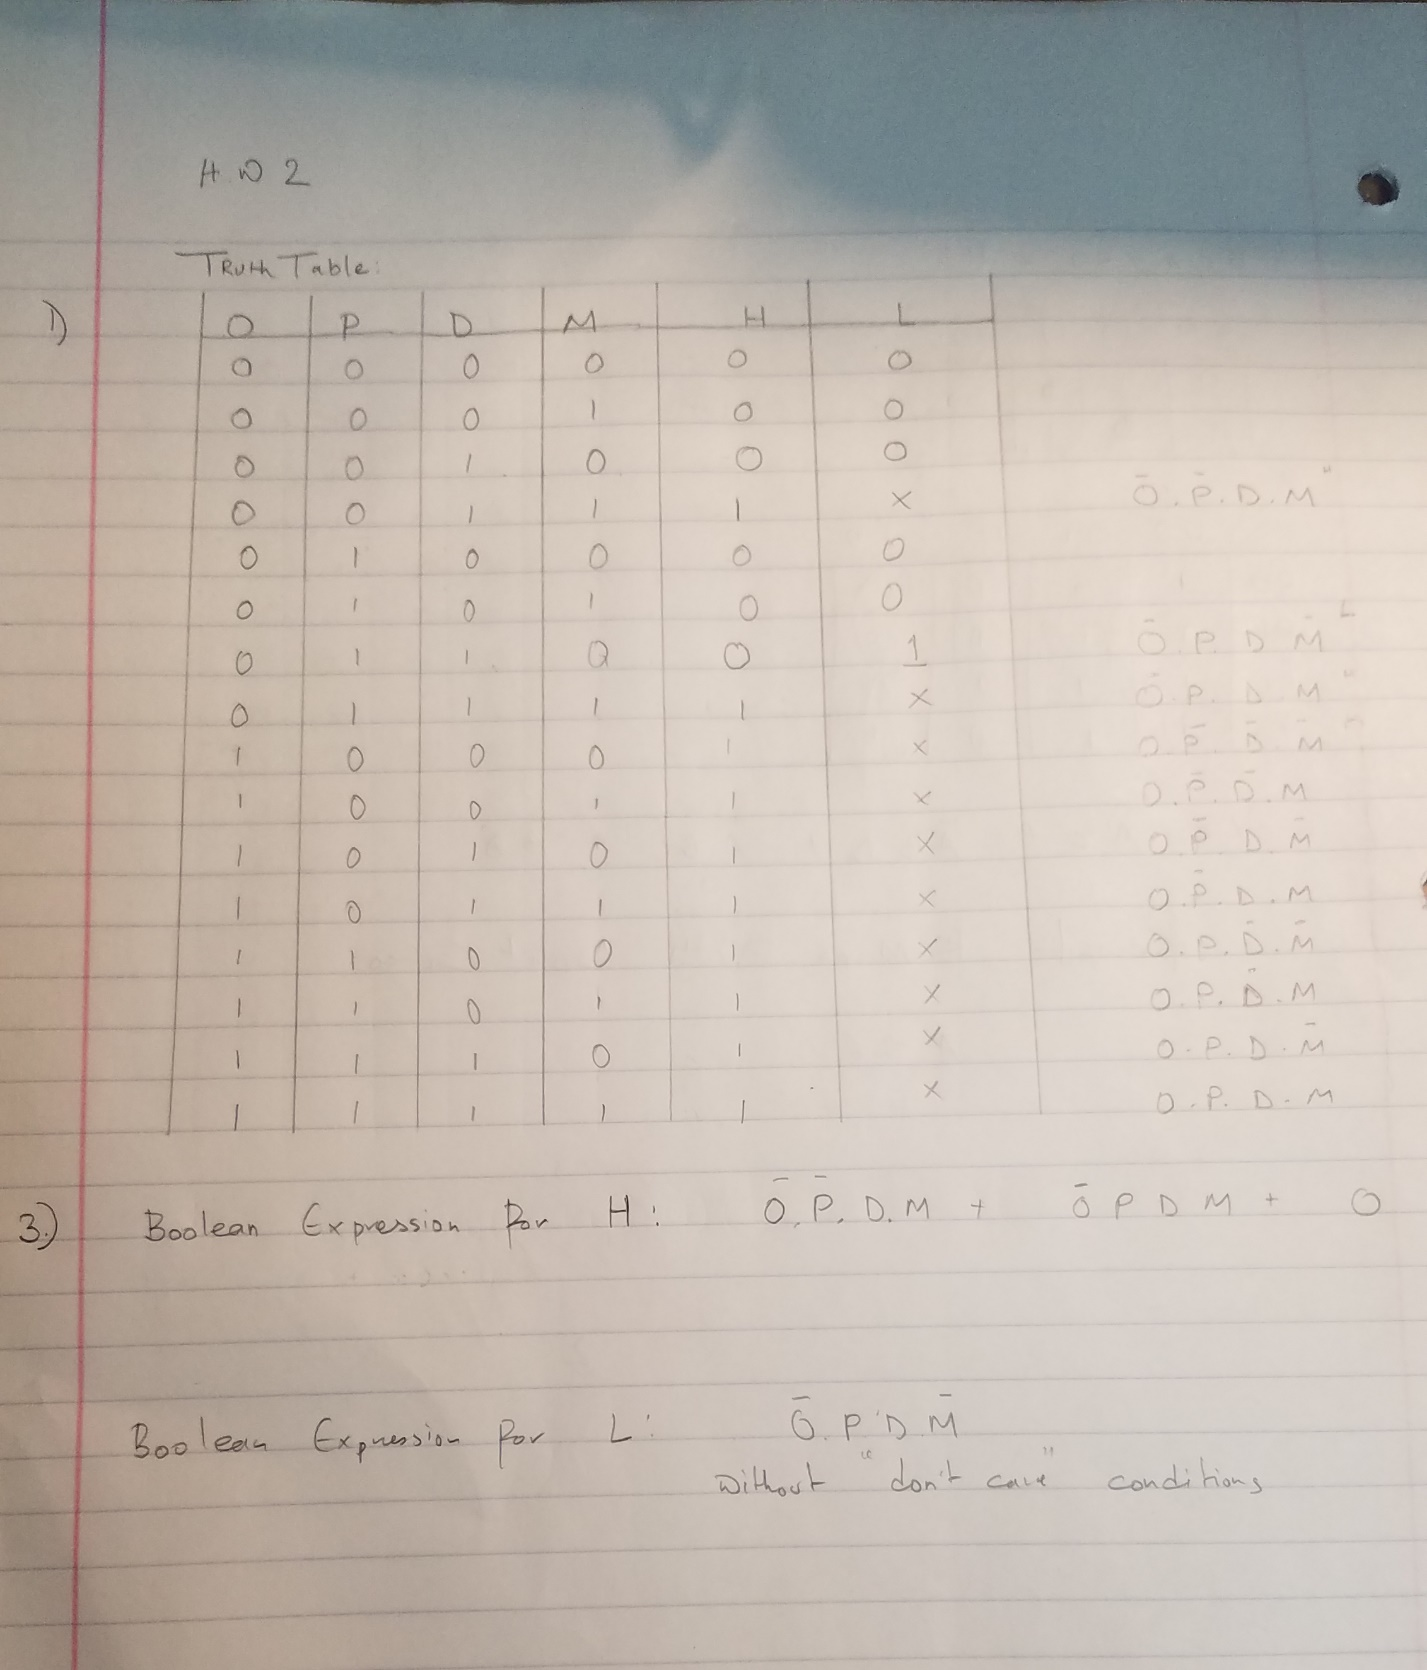 H.W 2
Truth Table:
1) O P D M H L
0 0 0 0 0 0
0 0 0 1 0 0
0 0 1 0 0 0
0 0 1 1 1 x Ō.P̄.D.M
0 1 0 0 0 0
0 1 0 1 0 0
0 1 1 0 0 1 Ō.P.D M̄ L
0 1 1 1 1 x Ō.P.D M
1 0 0 0 1 x O.P̄.D̄.M̄
1 0 0 1 1 x O.P̄.D̄.M
1 0 1 0 1 x O.P̄ D.M̄
1 0 1 1 1 x O.P̄.D.M
1 1 0 0 1 x O.P.D̄.M̄
1 1 0 1 1 x O.P.D̄.M
1 1 1 0 1 x O.P.D.M̄
1 1 1 1 1 x O.P.D.M
3.) Boolean Expression for H: Ō.P̄.D.M + Ō P D M + O
Boolean Expression for L: Ō.P.D.M̄
Without "don't care" conditions